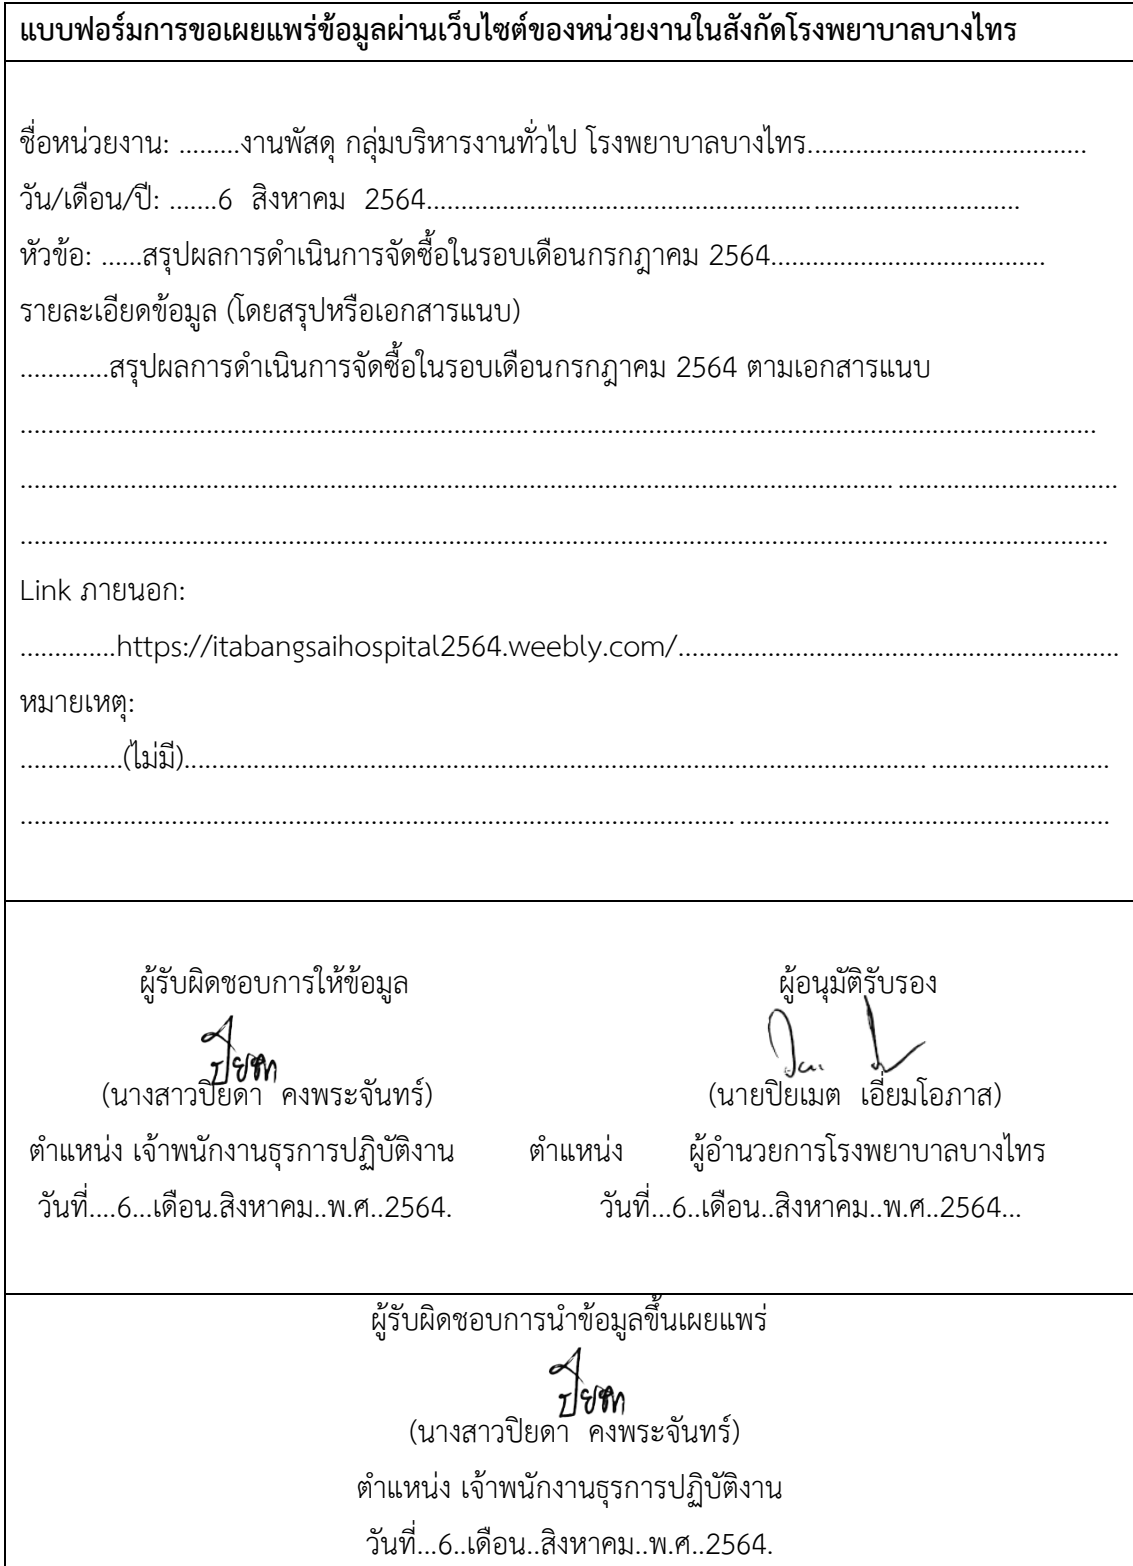 แบบฟอร์มการขอเผยแพร่ข้อมูลผ่านเว็บไซต์ของหน่วยงานในสังกัดโรงพยาบาลบางไทร
ชื่อหน่วยงาน: .........งานพัสดุ กลุ่มบริหารงานทั่วไป โรงพยาบาลบางไทร........................................
วัน/เดือน/ปี: .......6 สิงหาคม 2564......................................................................................
หัวข้อ: ......สรุปผลการดำเนินการจัดซื้อในรอบเดือนกรกฎาคม 2564........................................
รายละเอียดข้อมูล (โดยสรุปหรือเอกสารแนบ)
.............สรุปผลการดำเนินการจัดซื้อในรอบเดือนกรกฎาคม 2564 ตามเอกสารแนบ
Link ภายนอก:
..............https://itabangsaihospital2564.weebly.com/................................................................
หมายเหตุ:
...............(ไม่มี)......................................................................................................................
ผู้รับผิดชอบการให้ข้อมูล ผู้อนุมัติรับรอง
ปิยดา
(นางสาวปิยดา คงพระจันทร์) (นายปิยเมต เอี่ยมโอภาส)
ตำแหน่ง เจ้าพนักงานธุรการปฏิบัติงาน ตำแหน่ง ผู้อำนวยการโรงพยาบาลบางไทร
วันที่....6...เดือน.สิงหาคม..พ.ศ..2564. วันที่...6..เดือน..สิงหาคม..พ.ศ..2564...
ผู้รับผิดชอบการนำข้อมูลขึ้นเผยแพร่
ปิยดา
(นางสาวปิยดา คงพระจันทร์)
ตำแหน่ง เจ้าพนักงานธุรการปฏิบัติงาน
วันที่...6..เดือน..สิงหาคม..พ.ศ..2564.